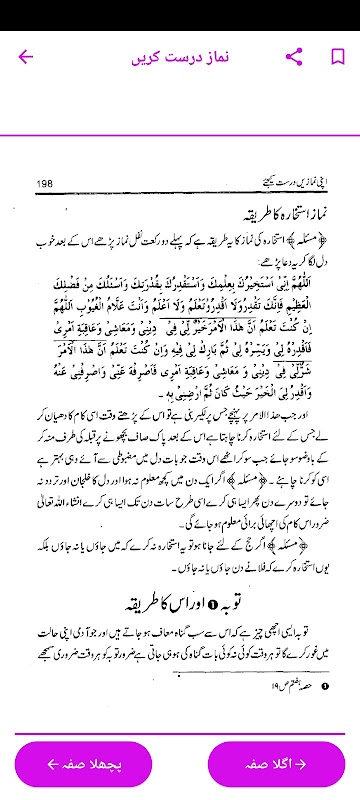 نماز درست کریں
198
اپنی نمازیں درست کیجئے
نماز استخارہ کا طریقہ
﴿مسئلہ﴾ استخارہ کی نماز کا یہ طریقہ ہے کہ پہلے دو رکعت نفل نماز پڑھے اس کے بعد خوب
دل لگا کر یہ دعا پڑھے:
اَللّٰهُمَّ اِنِّىْ اَسْتَخِيْرُكَ بِعِلْمِكَ وَاَسْتَقْدِرُكَ بِقُدْرَتِكَ وَاَسْئَلُكَ مِنْ فَضْلِكَ
الْعَظِيْمِ فَاِنَّكَ تَقْدِرُ وَلَا اَقْدِرُ وَتَعْلَمُ وَلَا اَعْلَمُ وَاَنْتَ عَلَّامُ الْغُيُوْبِ اَللّٰهُمَّ
اِنْ كُنْتَ تَعْلَمُ اَنَّ هٰذَا الْاَمْرَ خَيْرٌ لِّىْ فِىْ دِيْنِىْ وَمَعَاشِىْ وَعَاقِبَةِ اَمْرِىْ
فَاقْدِرْهُ لِىْ وَيَسِّرْهُ لِىْ ثُمَّ بَارِكْ لِىْ فِيْهِ وَاِنْ كُنْتَ تَعْلَمُ اَنَّ هٰذَا الْاَمْرَ
شَرٌّ لِّىْ فِىْ دِيْنِىْ وَ مَعَاشِىْ وَعَاقِبَةِ اَمْرِىْ فَاصْرِفْهُ عَنِّىْ وَاصْرِفْنِىْ عَنْهُ
وَاقْدِرْ لِىَ الْخَيْرَ حَيْثُ كَانَ ثُمَّ اَرْضِنِىْ بِهٖ ۔
اور جب هذا الامر پر پہنچے جس پر لکیر بنی ہے تو اس کے پڑھتے وقت اسی کام کا دھیان کر
لے جس کے لئے استخارہ کرنا چاہتا ہے اس کے بعد پاک صاف بچھونے پر قبلہ کی طرف منہ کر
کے باوضو سو جائے جب سو کر اٹھے اس وقت جو بات دل میں مضبوطی سے آئے وہی بہتر ہے
اسی کو کرنا چاہئے ۔ ﴿مسئلہ﴾ اگر ایک دن میں کچھ معلوم نہ ہو اور دل کا خلجان اور تردد نہ
جائے تو دوسرے دن پھر ایسا ہی کرے اسی طرح سات دن تک ایسا ہی کرے انشاء اللہ تعالیٰ
ضرور اس کام کی اچھائی برائی معلوم ہو جائے گی ۔
﴿مسئلہ﴾ اگر حج کے لئے جانا ہو تو یہ استخارہ نہ کرے کہ میں جاؤں یا نہ جاؤں بلکہ
یوں استخارہ کرے کہ فلانے دن جاؤں یا نہ جاؤں ۔
توبہ ❶ اور اس کا طریقہ
توبہ ایسی اچھی چیز ہے کہ اس سے سب گناہ معاف ہو جاتے ہیں اور جو آدمی اپنی حالت
میں غور کرے گا تو ہر وقت کوئی نہ کوئی بات گناہ کی ہو ہی جاتی ہے ضرور توبہ کو ہر وقت ضروری سمجھے
❶ حصہ ہفتم ص ۱۹
پچھلا صفہ ←
→ اگلا صفہ